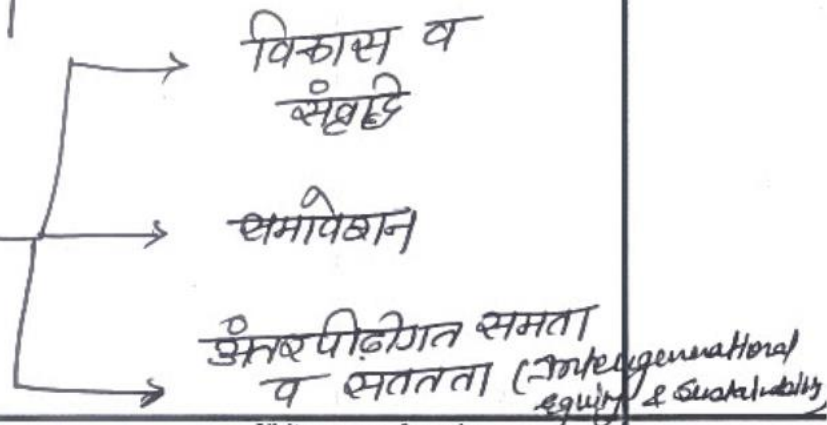 विकास व
संवृद्धि
समावेशन
अंतरपीढ़ीगत समता
व सततता (Intergenerational
equity & Sustainability